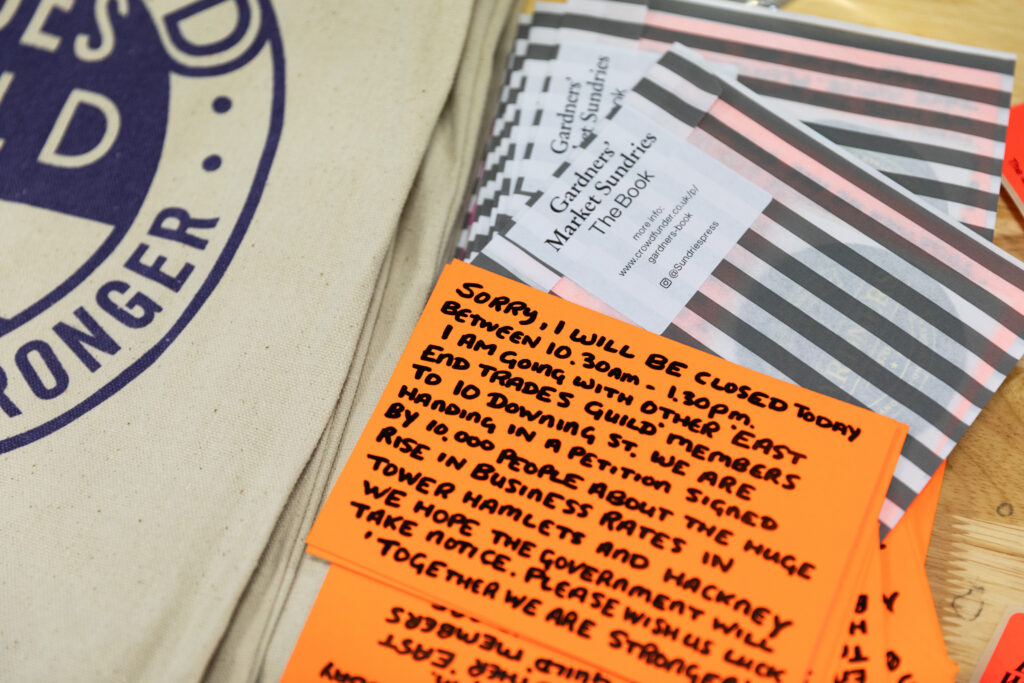 DES
D
LD
ONGER
Gardners'
Market Sundries
The Book
more info:
www.crowdfunder.co.uk/p/
gardners-book
@Sundriespress
Gardners'
et Sundries
SORRY, I WILL BE CLOSED TODAY
BETWEEN 10.30am - 1.30pm.
I AM GOING WITH OTHER 'EAST
END TRADES GUILD' MEMBERS
TO 10 DOWNING ST. WE ARE
HANDING IN A PETITION SIGNED
BY 10,000 PEOPLE ABOUT THE HUGE
RISE IN BUSINESS RATES IN
TOWER HAMLETS AND HACKNEY
WE HOPE THE GOVERNMENT WILL
TAKE NOTICE. PLEASE WISH US LUCK
'TOGETHER WE ARE STRONGER
GUILD' MEMBERS
OTHER 'EAST